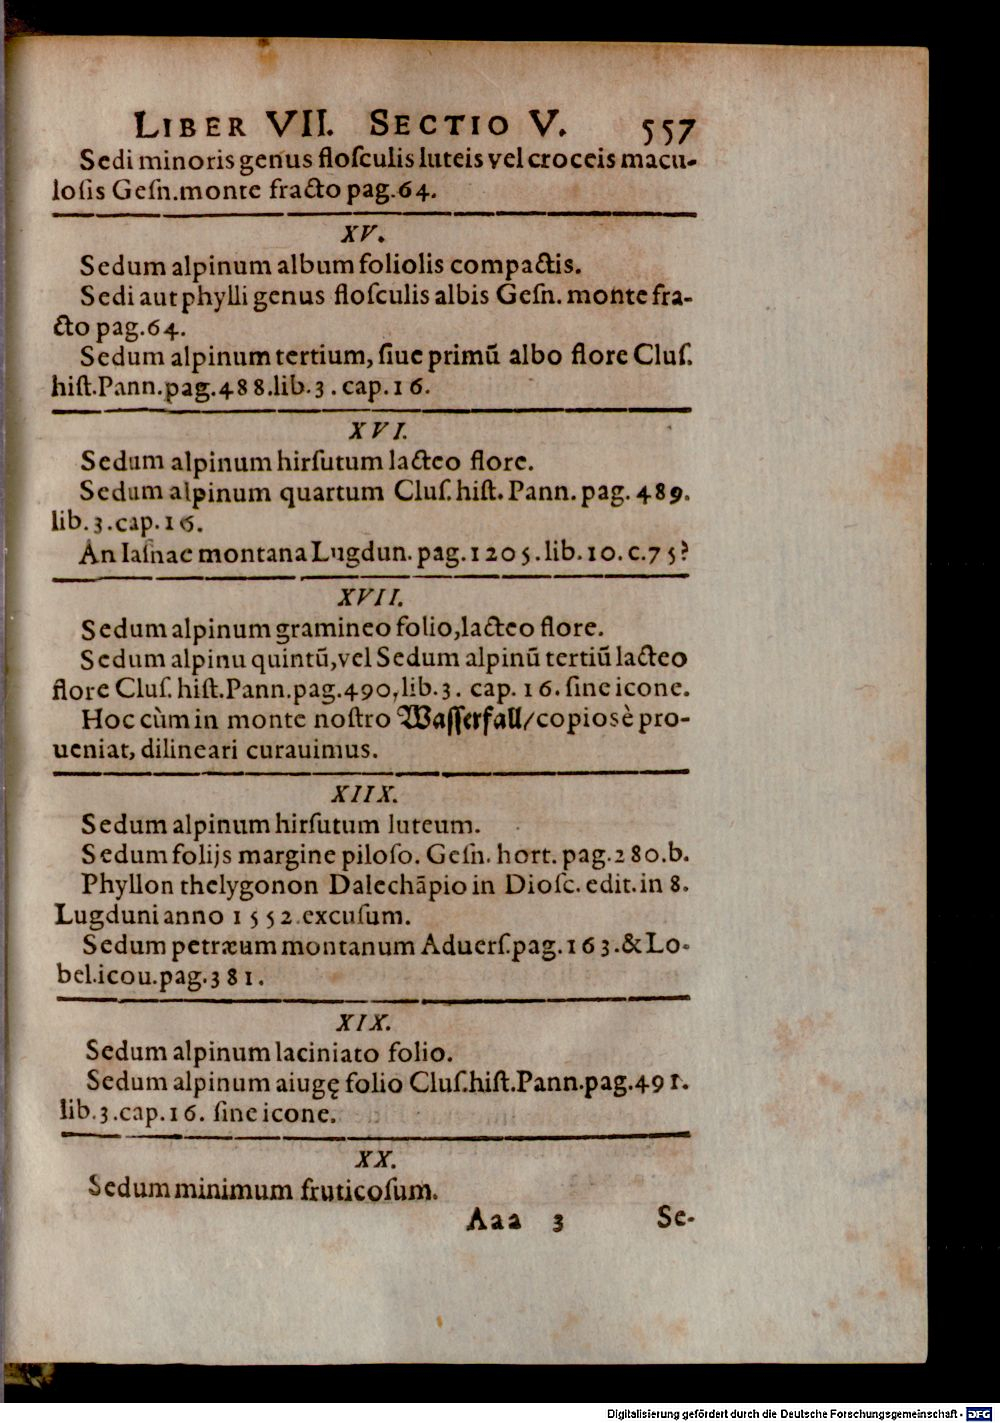 LIBER VII. SECTIO V. 557
Sedi minoris genus floſculis luteis vel croceis macu-
loſis Geſn. monte fracto pag. 64.
XV.
Sedum alpinum album foliolis compactis.
Sedi aut phylli genus floſculis albis Geſn. monte fra-
cto pag. 64.
Sedum alpinum tertium, ſiue primū albo flore Cluſ.
hiſt. Pann. pag. 488. lib. 3. cap. 16.
XVI.
Sedum alpinum hirſutum lacteo flore.
Sedum alpinum quartum Cluſ. hiſt. Pann. pag. 489.
lib. 3. cap. 16.
An Iaſnae montana Lugdun. pag. 1205. lib. 10. c. 75?
XVII.
Sedum alpinum gramineo folio, lacteo flore.
Sedum alpinu quintū, vel Sedum alpinū tertiū lacteo
flore Cluſ. hiſt. Pann. pag. 490, lib. 3. cap. 16. ſine icone.
Hoc cùm in monte noſtro Waſſerfall/ copiosè pro-
ueniat, dilineari curauimus.
XIIX.
Sedum alpinum hirſutum luteum.
Sedum folijs margine piloſo. Geſn. hort. pag. 280. b.
Phyllon thelygonon Dalechāpio in Dioſc. edit. in 8.
Lugduni anno 1552 excuſum.
Sedum petræum montanum Aduerſ. pag. 163. & Lo-
bel. icou. pag. 381.
XIX.
Sedum alpinum laciniato folio.
Sedum alpinum aiugę folio Cluſ. hiſt. Pann. pag. 491.
lib. 3. cap. 16. ſine icone.
XX.
Sedum minimum fruticoſum.
Aaa 3 Se-
Digitalisierung gefördert durch die Deutsche Forschungsgemeinschaft - DFG